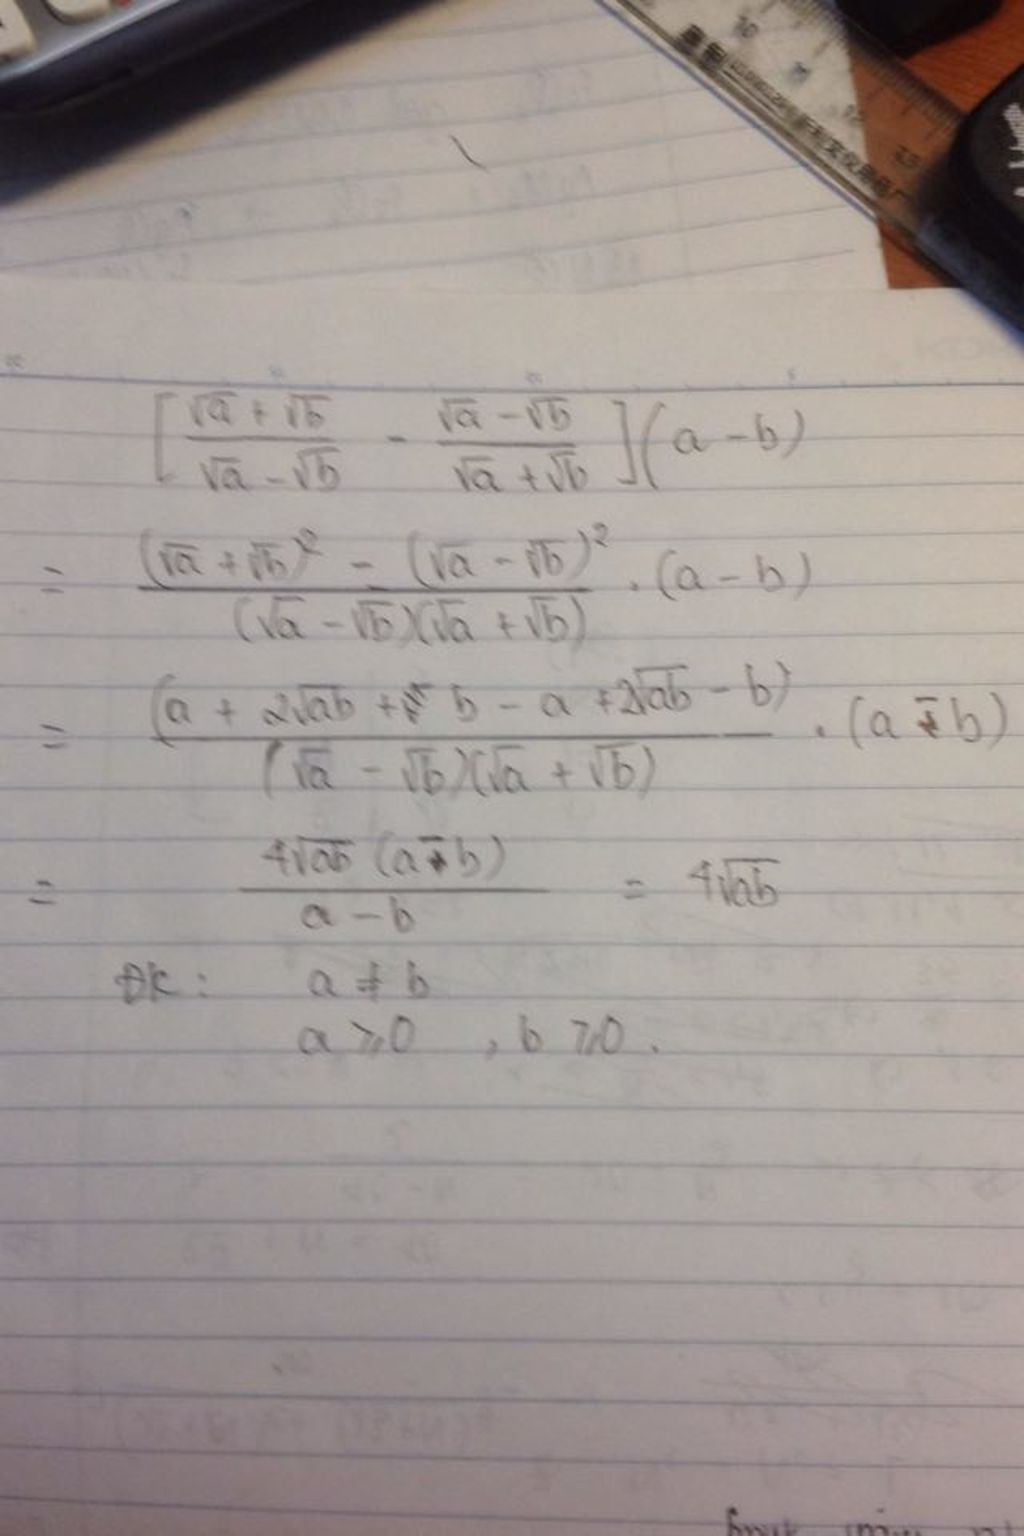 [(√a + √b)/(√a - √b) - (√a - √b)/(√a + √b)](a - b)
= ((√a + √b)² - (√a - √b)²)/((√a - √b)(√a + √b)) . (a - b)
= (a + 2√ab + b - a + 2√ab - b)/((√a - √b)(√a + √b)) . (a - b)
= 4√ab (a - b)/(a - b) = 4√ab
ĐK: a ≠ b
a ⩾ 0 , b ⩾ 0 .